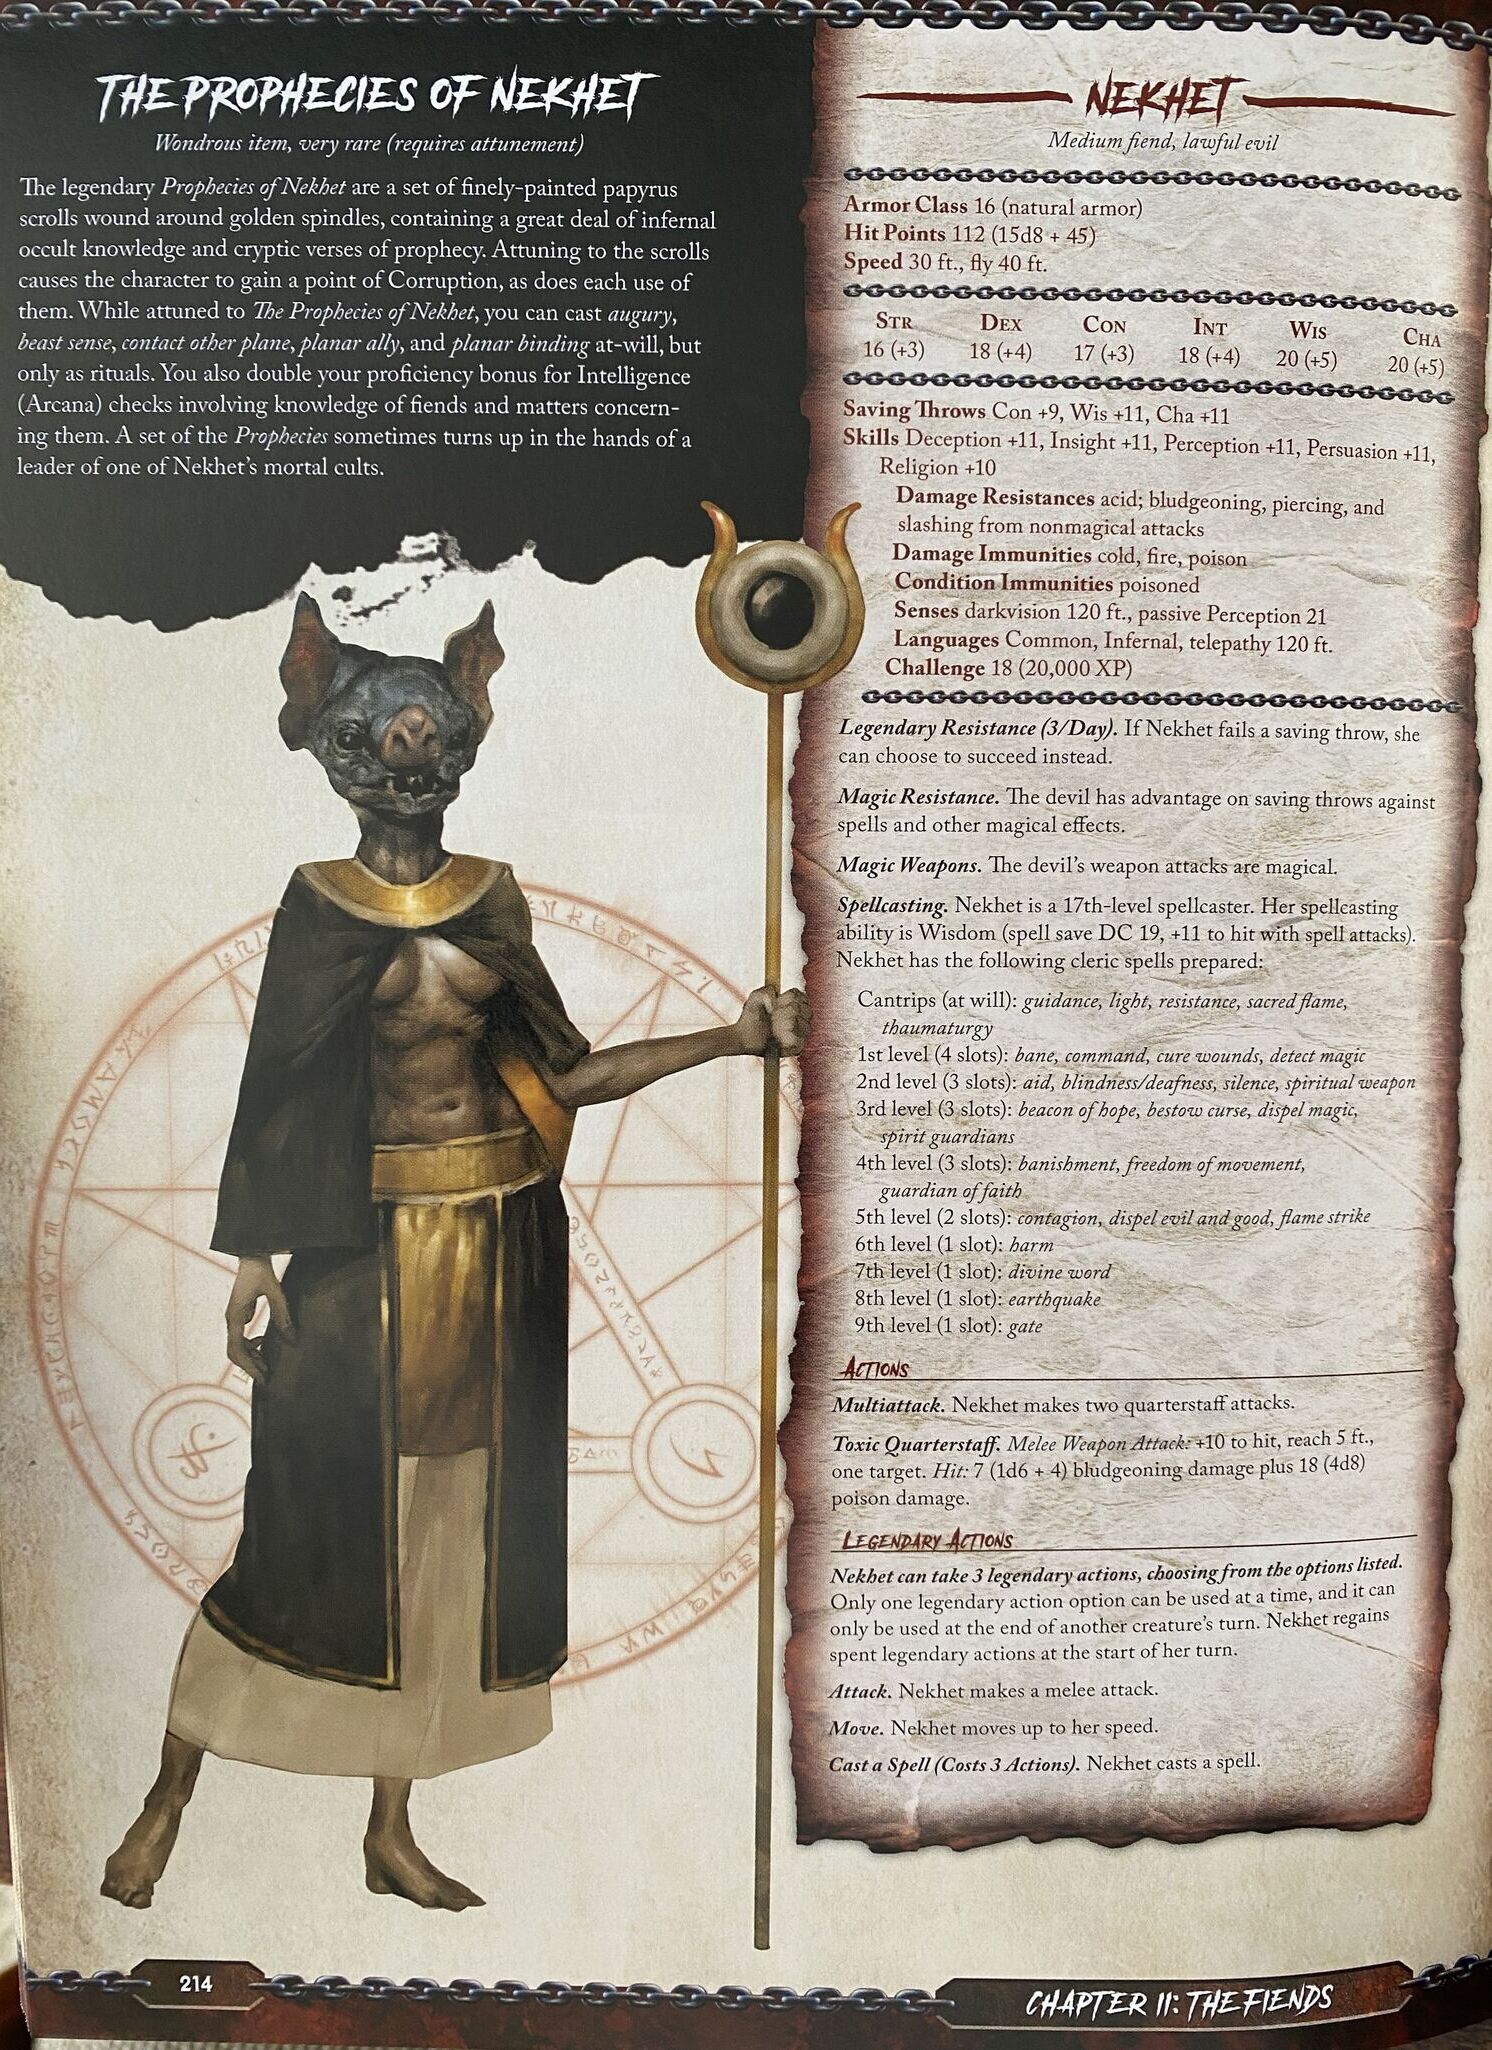 THE PROPHECIES OF NEKHET
Wondrous item, very rare (requires attunement)
The legendary Prophecies of Nekhet are a set of finely-painted papyrus
scrolls wound around golden spindles, containing a great deal of infernal
occult knowledge and cryptic verses of prophecy. Attuning to the scrolls
causes the character to gain a point of Corruption, as does each use of
them. While attuned to The Prophecies of Nekhet, you can cast augury,
beast sense, contact other plane, planar ally, and planar binding at-will, but
only as rituals. You also double your proficiency bonus for Intelligence
(Arcana) checks involving knowledge of fiends and matters concern-
ing them. A set of the Prophecies sometimes turns up in the hands of a
leader of one of Nekhet's mortal cults.
NEKHET
Medium fiend, lawful evil
Armor Class 16 (natural armor)
Hit Points 112 (15d8 + 45)
Speed 30 ft., fly 40 ft.
STR DEX CON INT WIS CHA
16 (+3) 18 (+4) 17 (+3) 18 (+4) 20 (+5) 20 (+5)
Saving Throws Con +9, Wis +11, Cha +11
Skills Deception +11, Insight +11, Perception +11, Persuasion +11,
Religion +10
Damage Resistances acid; bludgeoning, piercing, and
slashing from nonmagical attacks
Damage Immunities cold, fire, poison
Condition Immunities poisoned
Senses darkvision 120 ft., passive Perception 21
Languages Common, Infernal, telepathy 120 ft.
Challenge 18 (20,000 XP)
Legendary Resistance (3/Day). If Nekhet fails a saving throw, she
can choose to succeed instead.
Magic Resistance. The devil has advantage on saving throws against
spells and other magical effects.
Magic Weapons. The devil's weapon attacks are magical.
Spellcasting. Nekhet is a 17th-level spellcaster. Her spellcasting
ability is Wisdom (spell save DC 19, +11 to hit with spell attacks).
Nekhet has the following cleric spells prepared:
Cantrips (at will): guidance, light, resistance, sacred flame,
thaumaturgy
1st level (4 slots): bane, command, cure wounds, detect magic
2nd level (3 slots): aid, blindness/deafness, silence, spiritual weapon
3rd level (3 slots): beacon of hope, bestow curse, dispel magic,
spirit guardians
4th level (3 slots): banishment, freedom of movement,
guardian of faith
5th level (2 slots): contagion, dispel evil and good, flame strike
6th level (1 slot): harm
7th level (1 slot): divine word
8th level (1 slot): earthquake
9th level (1 slot): gate
ACTIONS
Multiattack. Nekhet makes two quarterstaff attacks.
Toxic Quarterstaff. Melee Weapon Attack: +10 to hit, reach 5 ft.,
one target. Hit: 7 (1d6 + 4) bludgeoning damage plus 18 (4d8)
poison damage.
LEGENDARY ACTIONS
Nekhet can take 3 legendary actions, choosing from the options listed.
Only one legendary action option can be used at a time, and it can
only be used at the end of another creature's turn. Nekhet regains
spent legendary actions at the start of her turn.
Attack. Nekhet makes a melee attack.
Move. Nekhet moves up to her speed.
Cast a Spell (Costs 3 Actions). Nekhet casts a spell.
214
CHAPTER 11: THE FIENDS